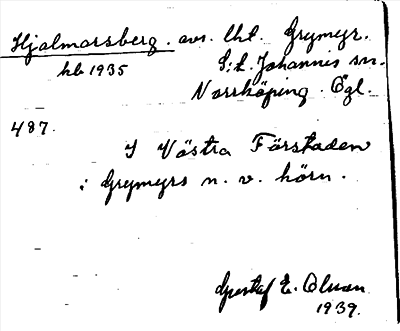 Hjalmarsberg. avs. lht. Grymyr.
hb 1935 S:t. Johannis sn.
Norrköping. Ögl.
487.
I Västra Förstaden
i Grymyrs n. v. hörn.
Gustaf E. Olson
1939.